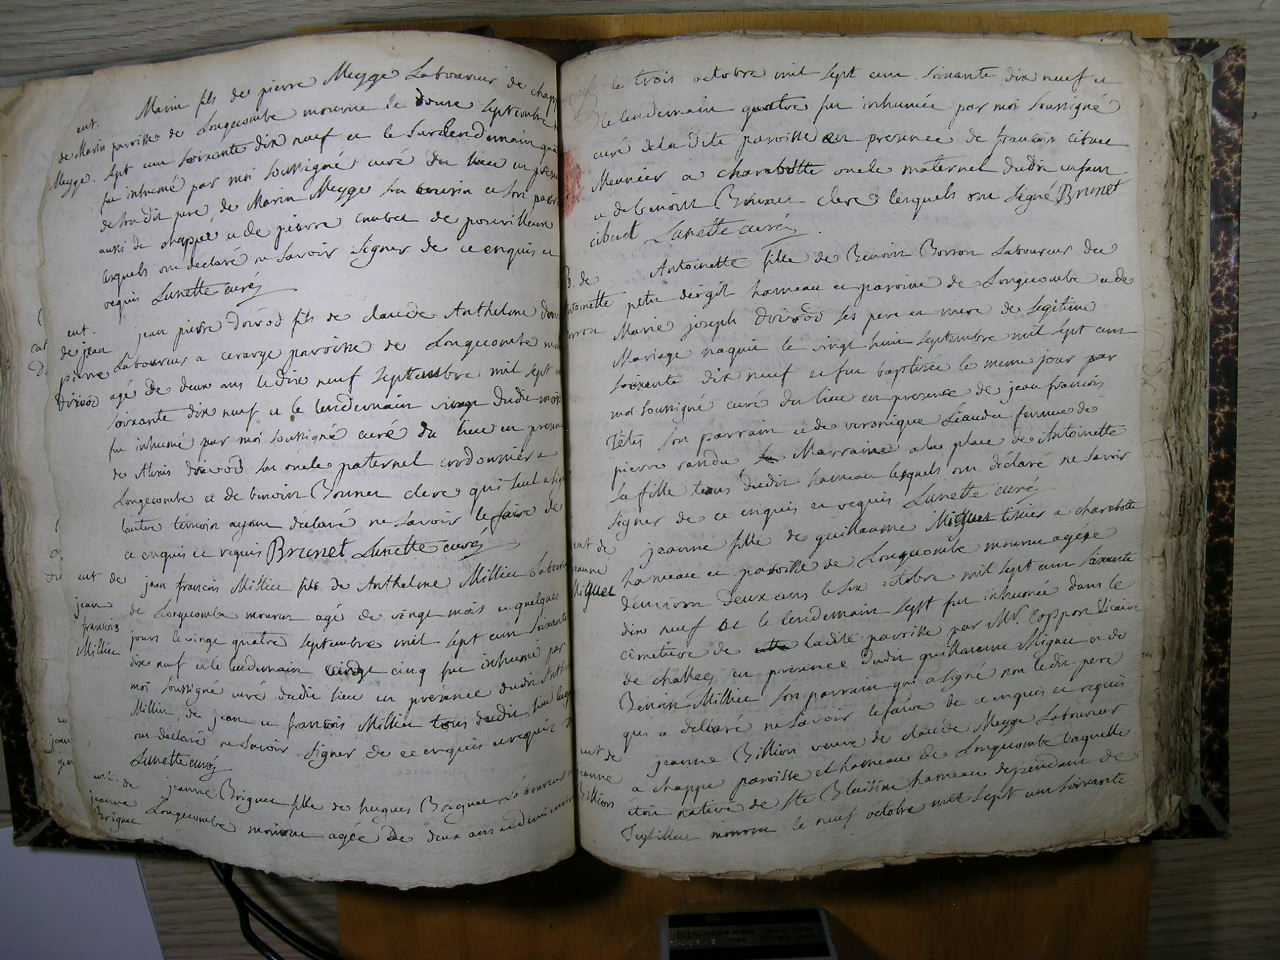 ent.
de Marin
Meyge.
Marin fils de pierre Meygé Laboureur de chap
paroisse de Longecombe mourut le douze septembre
sept cent soixante dix neuf et le surlendemain
fut inhumé par moi soussigné curé du lieu en
de son dit pere, de Marin Meyge son cousin et son
aussi de chappe et de pierre de
lesquels ont déclaré ne savoir signer de ce enquis et
requis Lunette curé
ent.
de jean
pierre
jean pierre fils de claude Anthelme
Laboureur a paroisse de Longecombe
agé de deux ans le dix neuf septembre mil sept
soixante dix neuf et le lendemain vingt dudit mois
fut inhumé par moi soussigné curé du lieu en
de Alexis son oncle paternel cordonnier a
Longecombe et de benoit Brunet clerc qui seul a
lautre temoin ayant déclaré ne savoir le faire de
ce enquis et requis Brunet Lunette curé
ent de
jean
françois
Milliet
jean françois Milliet fils de Anthelme Milliet
de Longecombe mourut agé de vingt mois et quelques
jours le vingt quatre septembre mil sept cent soixante
dix neuf et le lendemain vingt cinq fut inhumé par
moi soussigné curé dudit lieu en présence dudit
Milliet, de jean et françois Milliet tous dudit lieu
ont declaré ne savoir signer de ce enquis et requis
Lunette curé
ent. de
jeanne
Briguet
jeanne Briguet fille de hugues Briguet
Longecombe mourut agée de deux ans et demi
le trois octobre mil sept cent soixante dix neuf et
le lendemain quatre fut inhumée par moi soussigné
curé de la dite paroisse en presence de francois cibuet
Meunier a charabotte oncle maternel dudit enfant
et de benoit Brunet clerc lesquels ont signé Brunet
cibuet Lunette curé.
B. de
Antoinette
Borron
Antoinette fille de Benoit Borron Laboureur du
petit hameau et paroisse de Longecombe et de
Marie joseph ses pere et mere de Legitime
Mariage naquit le vingt huit septembre mil sept cent
soixante dix neuf et fut baptisée le meme jour par
moi soussigné curé du lieu en presence de jean francois
son parrain et de veronique femme de
pierre Marraine a la place de Antoinette
sa fille tous dudit hameau lesquels ont déclaré ne savoir
signer de ce enquis et requis Lunette curé
ent de
jeanne
Miguet
jeanne fille de guillaume Miguet tissier a charabotte
hameau et paroisse de Longecombe mourut agée
denviron deux ans le six octobre mil sept cent soixante
dix neuf et le lendemain sept fut inhumée dans le
cimetiere de ladite paroisse par Mr. vicaire
de challes en presence dudit guillaume Miguet et de
Benoit Milliet son parrain qui a signé non ledit pere
qui a declaré ne savoir le faire de ce enquis et requis
ent de
jeanne
Billion
jeanne Billion veuve de claude Meyge Laboureur
a chappe paroisse et hameau de Longecombe laquelle
etoit native de Ste Blaisine hameau dependant de
mourut le neuf octobre mil sept cent soixante